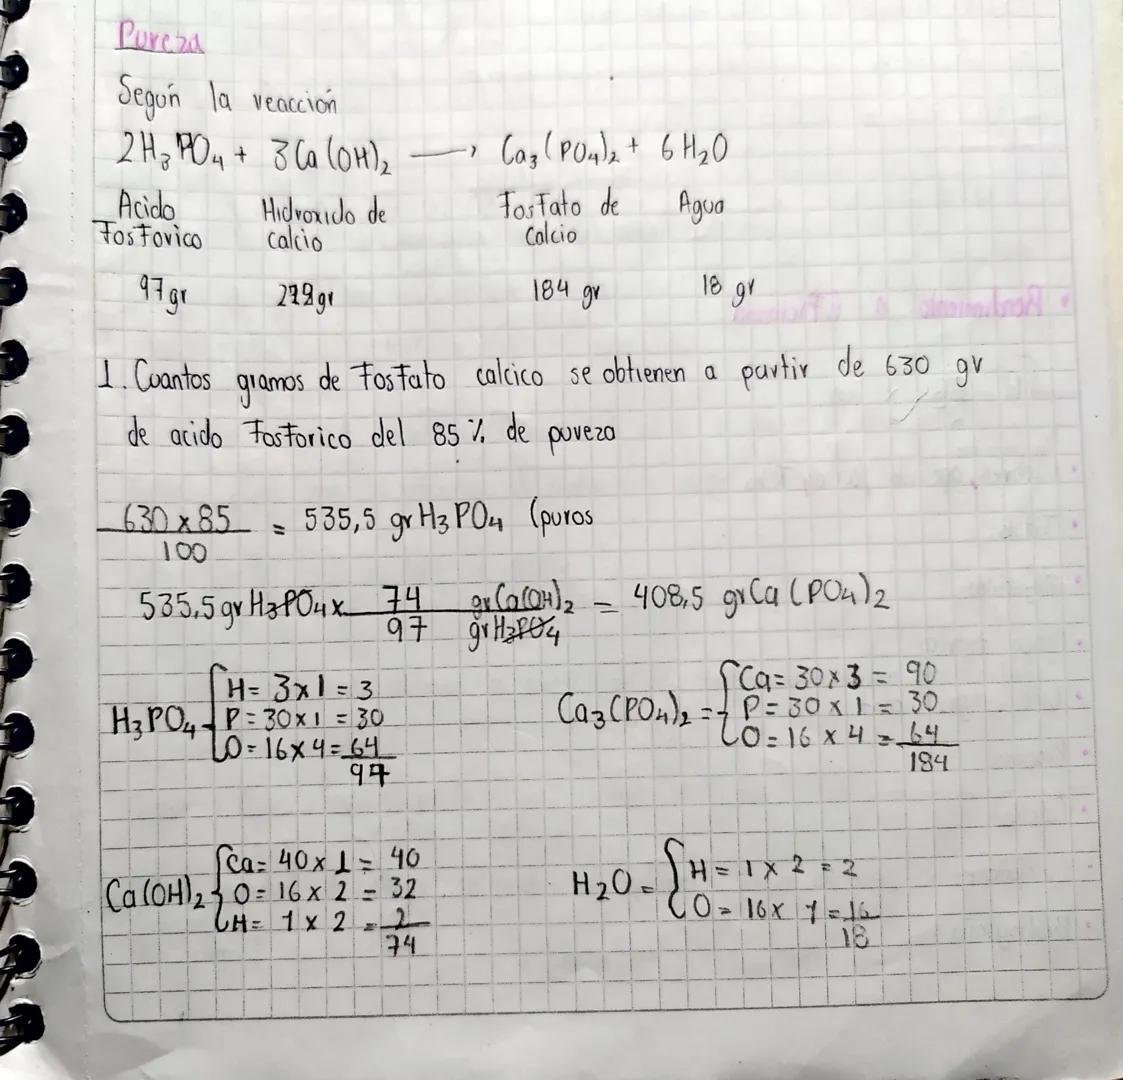 Pureza
Según la reacción
2H₃PO₄ + 3Ca(OH)₂ → Ca₃(PO₄)₂ + 6H₂O
Acido Hidroxido de Fosfato de Agua
Fosforico calcio Calcio
97 gr 222gr 184 gr 18 gr
1. Cuantos gramos de Fosfato calcico se obtienen a partir de 630 gr
de acido Fosforico del 85 % de pureza
630 x 85 / 100 = 535,5 gr H₃PO₄ (puros
535,5 gr H₃PO₄ x 74 gr Ca(OH)₂ / 97 gr H₃PO₄ = 408,5 gr Ca (PO₄)₂
H₃PO₄ { H = 3x1 = 3
P = 30x1 = 30
O = 16x4 = 64
97
Ca₃(PO₄)₂ = { Ca = 30x3 = 90
P = 30 x 1 = 30
O = 16 x 4 = 64
184
Ca(OH)₂ { Ca = 40 x 1 = 40
O = 16 x 2 = 32
H = 1 x 2 = 2
74
H₂O = { H = 1 x 2 = 2
O = 16x 1 = 16
18